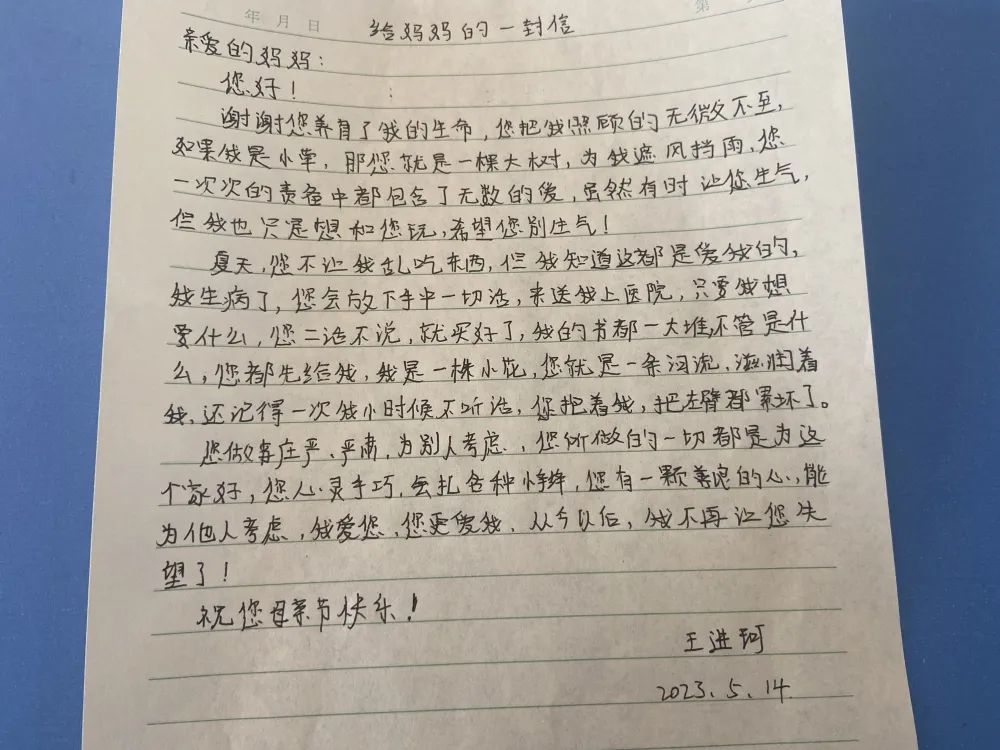 年 月 日
第
给妈妈的一封信
亲爱的妈妈：
您好！
谢谢您养育了我的生命，您把我照顾的无微不至，
如果我是小草，那您就是一棵大树，为我遮风挡雨，您
一次次的责备中都包含了无数的爱，虽然有时让您生气，
但我也只是想和您玩，希望您别生气！
夏天，您不让我乱吃东西，但我知道这都是爱我的，
我生病了，您会放下手中一切活，来送我上医院，只要我想
要什么，您二话不说，就买好了，我的书都一大堆，不管是什
么，您都先给我，我是一株小花，您就是一条河流，滋润着
我，还记得一次我小时候不听话，您把着我，把左臂都累坏了。
您做事庄严、严肃，为别人考虑，您所做的一切都是为这
个家好，您心灵手巧，会扎各种小辫，您有一颗善良的心，能
为他人考虑，我爱您，您更爱我，从今以后，我不再让您失
望了！
祝您母亲节快乐！
王进珂
2023.5.14